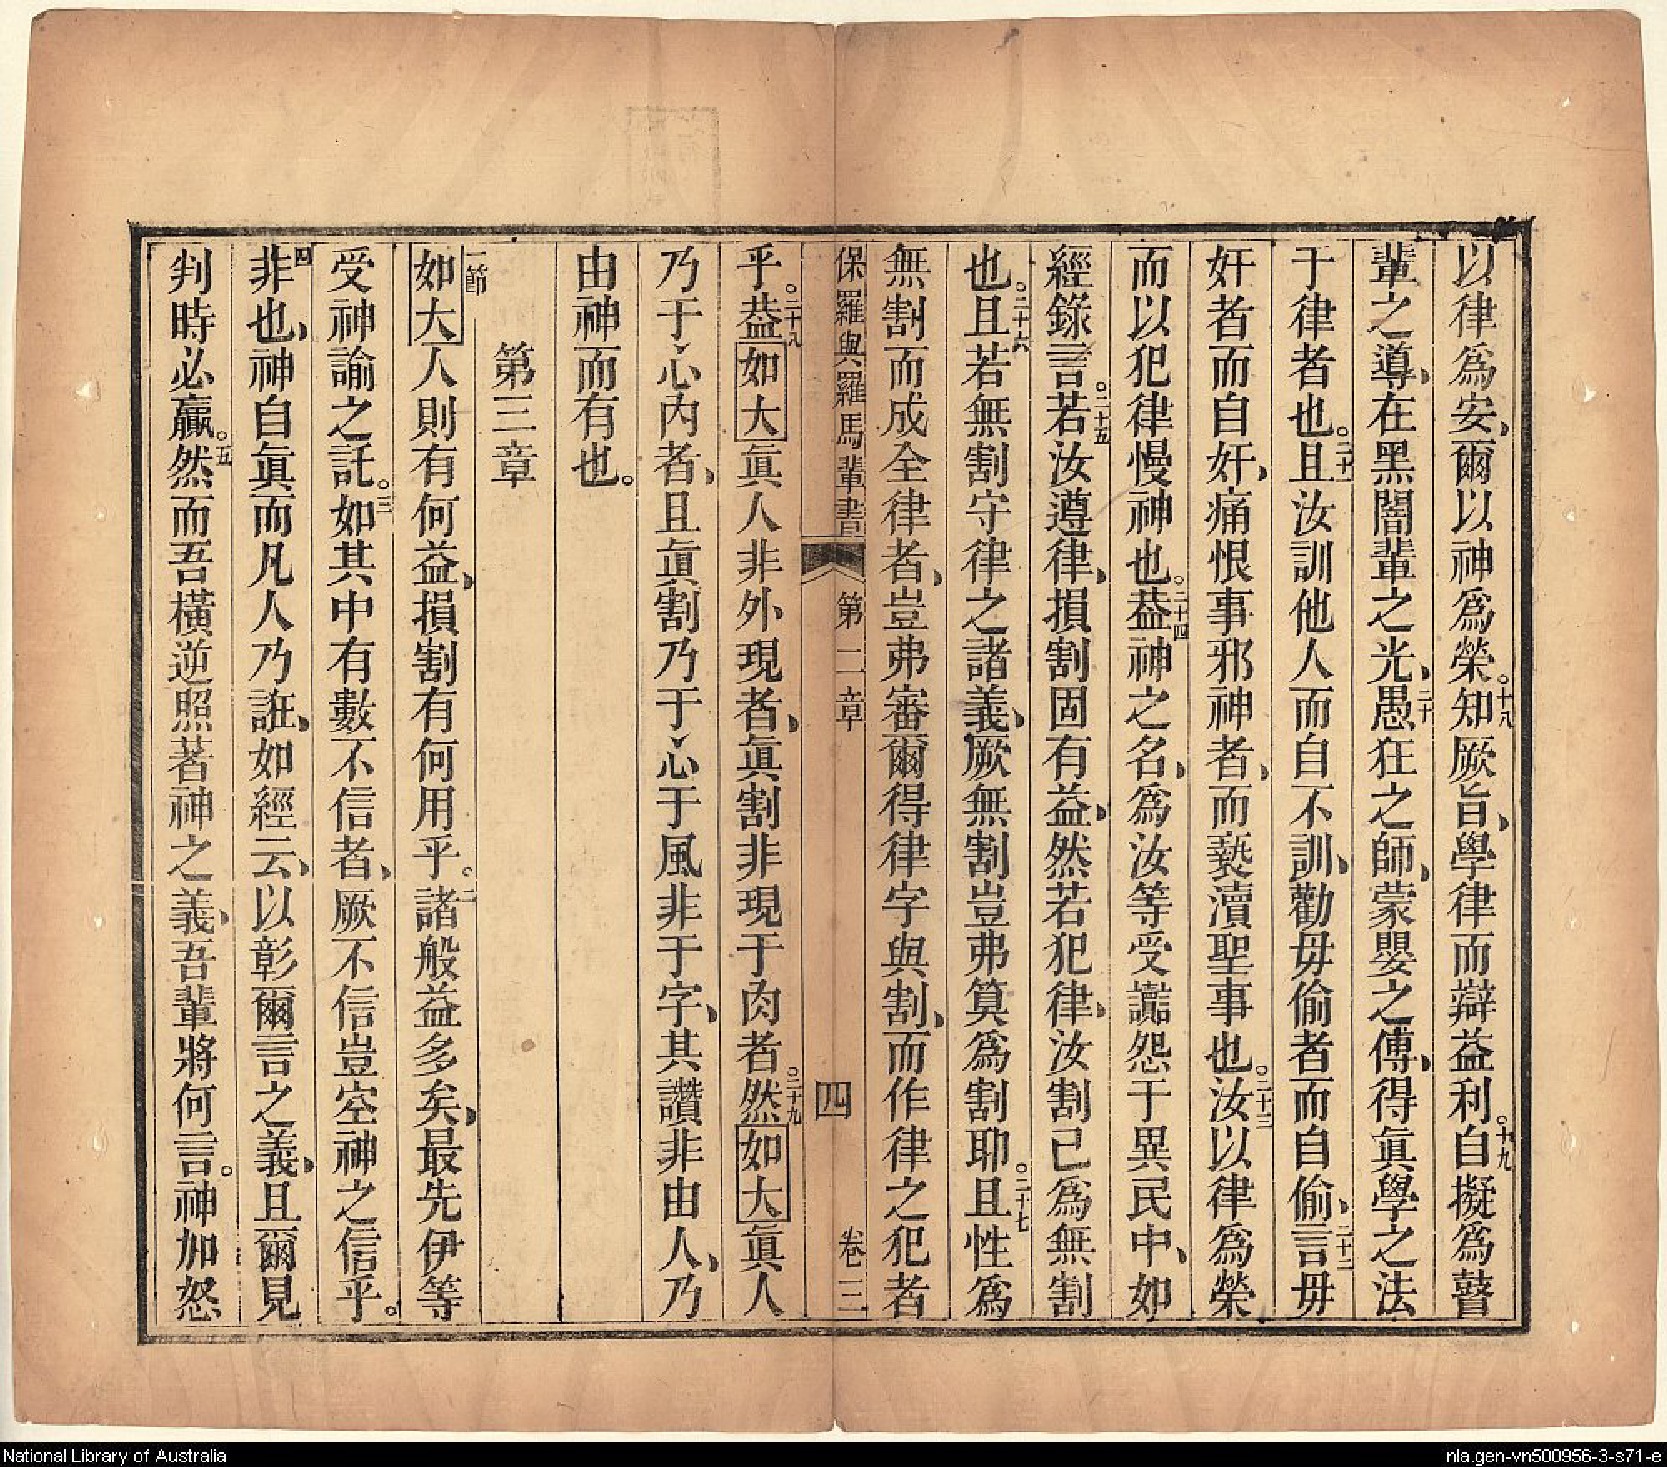 以律爲安、爾以神爲榮。十八知厥旨、學律而辯益利。十九自擬爲瞽
輩之導、在黑闇輩之光、二十愚狂之師、蒙嬰之傅、得眞學之法
于律者也。二十一且汝訓他人而自不訓、勸毋偷者而自偷、二十二言毋
奸者而自奸、痛恨事邪神者、而褻瀆聖事也。二十三汝以律爲榮
而以犯律慢神也。二十四葢神之名、爲汝等受讟怨于異民中、如
經錄言。二十五若汝遵律、損割固有益、然若犯律、汝割已爲無割
也。二十六且若無割守律之諸義、厥無割豈弗筭爲割耶。二十七且性爲
無割而成全律者、豈弗審爾得律字與割、而作律之犯者
保羅與羅馬輩書 第二章 四 卷三
乎。二十八葢如大眞人非外現者、眞割非現于肉者。二十九然如大眞人
乃于心內者、且眞割乃于心于風非于字、其讚非由人、乃
由神而有也。
第三章
一節如大人則有何益、損割有何用乎。二諸般益多矣、最先伊等
受神諭之託。三如其中有數不信者、厥不信豈空神之信乎。
四非也、神自眞而凡人乃誑、如經云、以彰爾言之義、且爾見
判時必贏。五然而吾橫逆照著神之義、吾輩將何言。神加怒
National Library of Australia
nla.gen-vn500956-3-s71-e